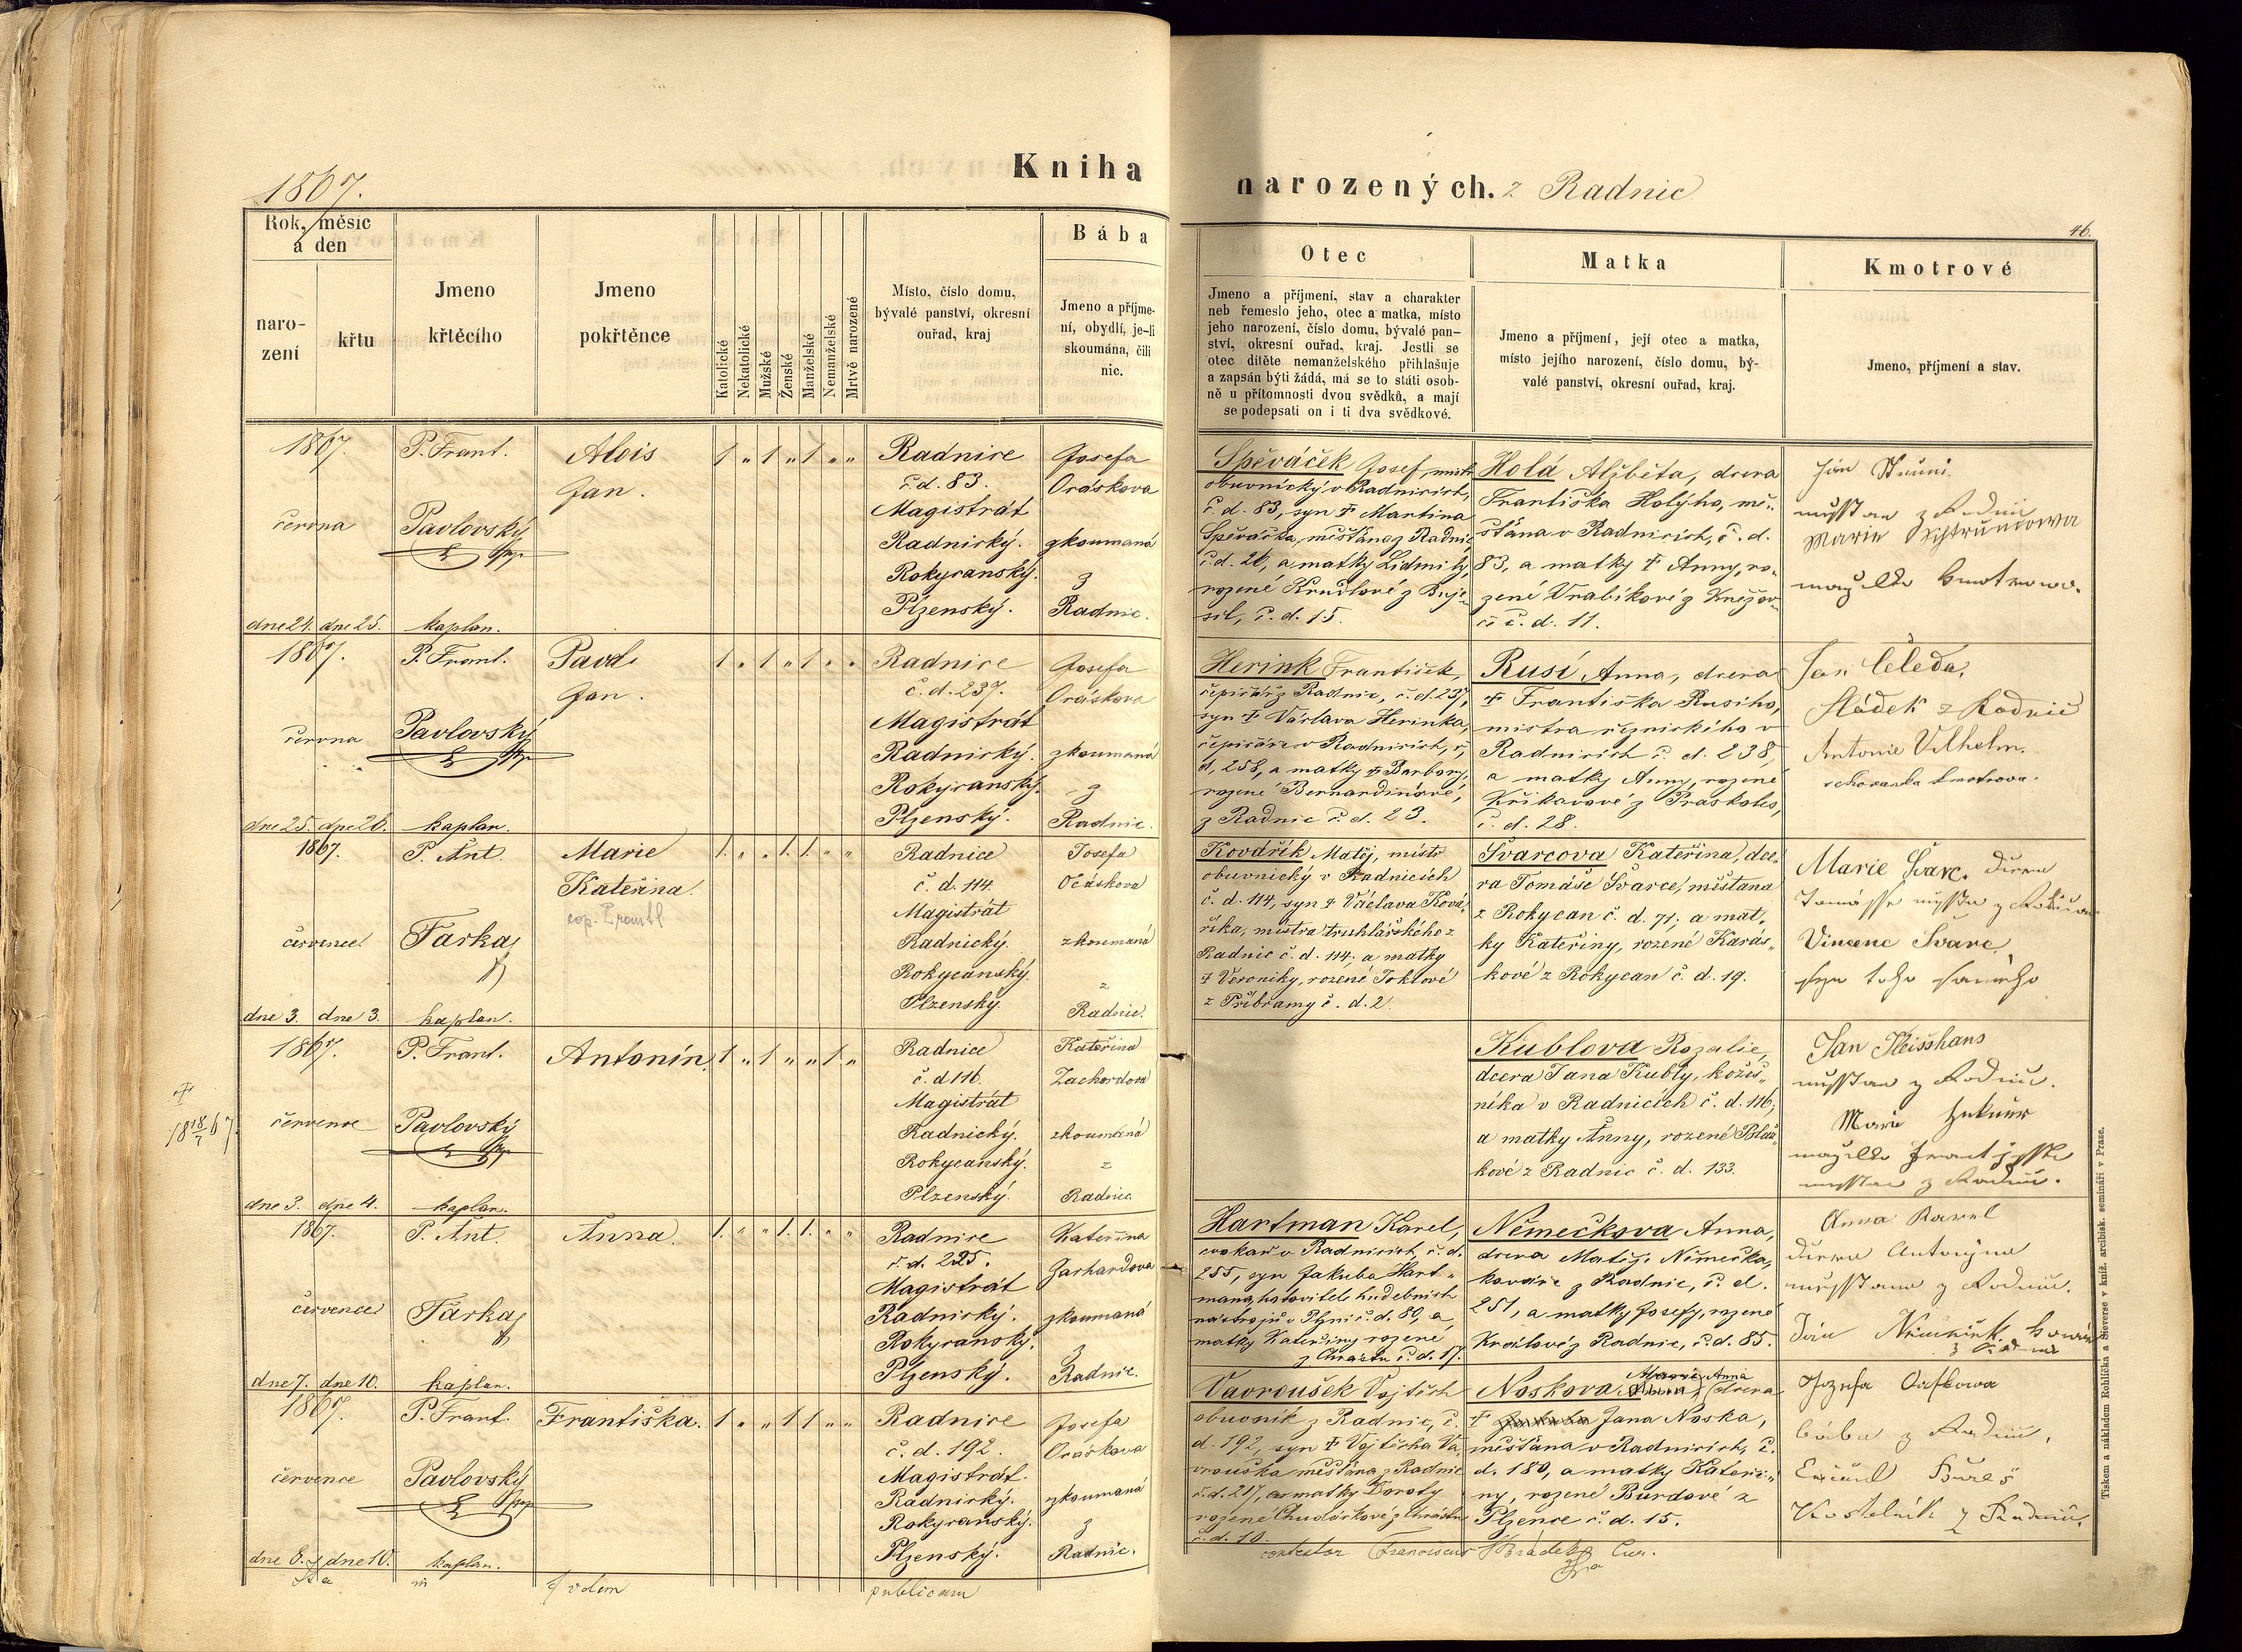 1867.
Kniha narozených. z Radnic
46.
Rok, měsíc a den
naro-
zení
křtu
Jmeno
křtěcího
Jmeno
pokřtěnce
Katolické
Nekatolické
Mužské
Ženské
Manželské
Nemanželské
Mrtvě narozené
Místo, číslo domu,
bývalé panství, okresní
ouřad, kraj
Bába
Jmeno a příjme-
ní, obydlí, je-li
skoumána, čili
nic.
Otec
Jmeno a příjmení, stav a charakter
neb řemeslo jeho, otec a matka, místo
jeho narození, číslo domu, bývalé pan-
ství, okresní ouřad, kraj. Jestli se
otec dítěte nemanželského přihlašuje
a zapsán býti žádá, má se to státi osob-
ně u přítomnosti dvou svědků, a mají
se podepsati on i ti dva svědkové.
Matka
Jmeno a příjmení, její otec a matka,
místo jejího narození, číslo domu, bý-
valé panství, okresní ouřad, kraj.
Kmotrové
Jmeno, příjmení a stav.
1867.
června
dne 24. dne 25.
P. Frant.
Pavlovský
kaplan.
Alois
Jan.
1 „ 1 „ 1 „ „
Radnice
č. d. 83.
Magistrát
Radnický.
Rokycanský.
Plzenský.
Josefa
Ocáskova
zkoumaná
z
Radnic.
Spěváček Josef, mistr
obuvnický v Radnicích,
č. d. 83, syn † Martina
Spěváčka, měšťana z Radnic
č. d. 26, a matky Lidmily,
rozené Krudlové z Buje-
sil, č. d. 15.
Holá Alžběta, dcera
Františka Holýho, mě-
šťana v Radnicích, č. d.
83, a matky † Anny, ro-
zené Vrabikové z Knežov-
č. d. 11.
1867.
června
dne 25. dne 26.
P. Frant.
Pavlovský
kaplan.
Pavel
Jan.
1 „ 1 „ 1 „ „
Radnice
č. d. 237.
Magistrát
Radnický.
Rokycanský.
Plzenský.
Josefa
Ocáskova
zkoumaná
z
Radnic.
Herink František,
čepičář z Radnic, č. d. 237,
syn † Václava Herinka,
čepičáře v Radnicích, č.
d. 258, a matky † Barbory,
rozené Bernardinové,
z Radnic č. d. 23.
Rusí Anna, dcera
† Františka Rusího,
mistra řeznického v
Radnicích č. d. 238,
a matky Anny, rozené
Křikavové z Praskoles,
č. d. 28.
Jan Čeleda,
sládek z Radnic
Antonie Vilhelm.
schovanka kmotrova.
1867.
července
dne 3. dne 3.
P. Ant.
Farka
kaplan.
Marie
Kateřina.
1. „ „ 1. 1. „ „
Radnice
č. d. 114.
Magistrát
Radnický.
Rokycanský.
Plzenský.
Josefa
Ocáskova
zkoumaná
z
Radnic.
Kovařík Matěj, mistr
obuvnický v Radnicích
č. d. 114, syn † Václava Ková-
říka, mistra truhlářského z
Radnic č. d. 114, a matky
† Veroniky, rozené Toklové
z Příbramy č. d. 2.
Švarcova Kateřina, dce-
ra Tomáše Švarce, měšťana
z Rokycan č. d. 71; a mat-
ky Kateřiny, rozené Karás-
kové z Rokycan č. d. 19.
Marie Švarc. dcera
Vincenc Švarc
syn toho samého
†
18 18/7 67.
1867.
července
dne 3. dne 4.
P. Frant.
Pavlovský
kaplan.
Antonín.
1 „ 1 „ „ 1 „
Radnice
č. d 116.
Magistrát
Radnický.
Rokycanský.
Plzenský.
Kateřina
Zachardova
zkoumaná
z
Radnic.
Kublova Rozalie,
dcera Jana Kubly, kožeš-
níka v Radnicích č. d. 116,
a matky Anny, rozené Blaž-
kové z Radnic č. d. 133.
Jan Fleisshans
1867.
července
dne 7. dne 10.
P. Ant.
Farka
kaplan.
Anna.
1. „ „ 1. 1. „ „
Radnice
č. d. 225.
Magistrát
Radnický.
Rokycanský.
Plzenský.
Kateřina
Zachardova
zkoumaná
z
Radnic.
Hartman Karel,
cvokař v Radnicích, č. d.
255, syn Jakuba Hart-
mana, hotovitele hudebních
nástrojů v Plzni č. d. 80, a
matky Kateřiny rozené
z Chrástu č. d. 17.
Němečkova Anna,
dcera Matěje Němečka,
kováře z Radnic, č. d.
251, a matky Josefy, rozené
Králové z Radnic, č. d. 85.
1867.
července
dne 8. dne 10.
P. Frant.
Pavlovský
kaplan.
Františka.
1 „ „ 1 1 „ „
Radnice
č. d. 192.
Magistrát.
Radnický.
Rokycanský.
Plzenský.
Josefa
Ocáskova
zkoumaná
z
Radnic.
Vavroušek Vojtěch
obuvník z Radnic, č.
d. 192, syn † Vojtěcha Va-
vrouška měšťana z Radnic
č. d. 217, a matky Doroty
rozené Chudáčkové z Chrástu
č. d. 10.
Marie Anna
Noskova dcera
† Jana Noska,
měšťana v Radnicích, č.
d. 180, a matky Kateři-
ny, rozené Burdové z
Plzence č. d. 15.
Bureš
Kostelník z Radnic.
Ita in fidem publicam contestor Franciscus Hrádek Cur.
Tiskem a nákladem Rohlíčka a Sieverse v kníž. arcibisk. semináři v Praze.